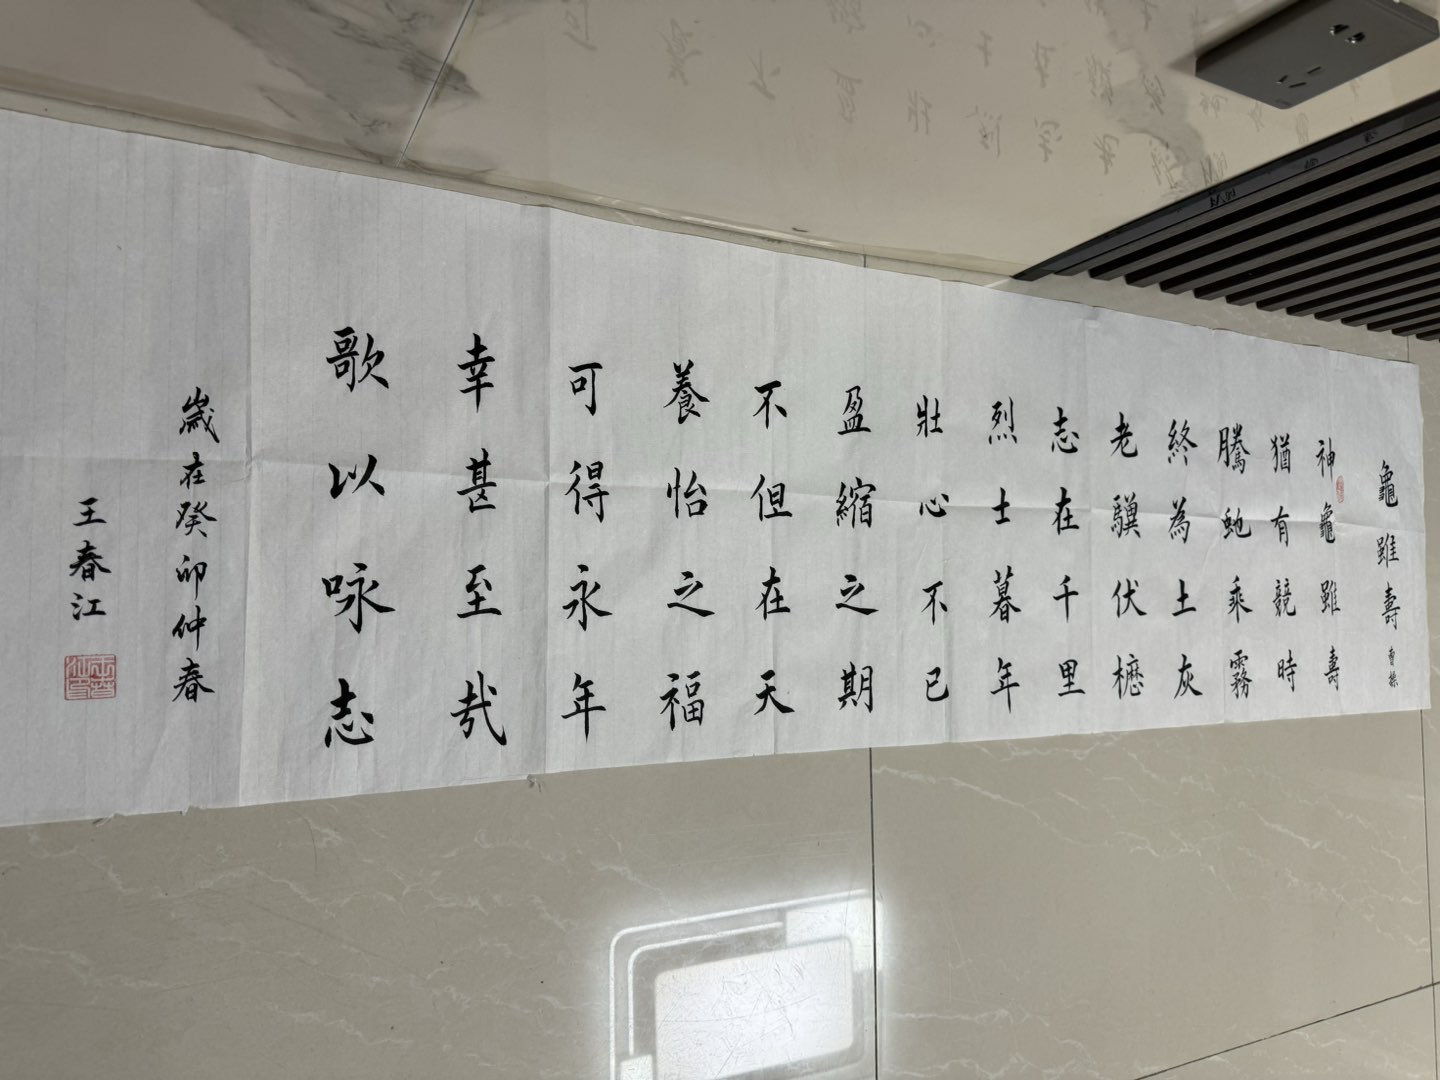 龜雖壽 曹操
神龜雖壽
猶有競時
騰虵乘霧
終為土灰
老驥伏櫪
志在千里
烈士暮年
壯心不已
盈縮之期
不但在天
養怡之福
可得永年
幸甚至哉
歌以咏志
歲在癸卯仲春
王春江